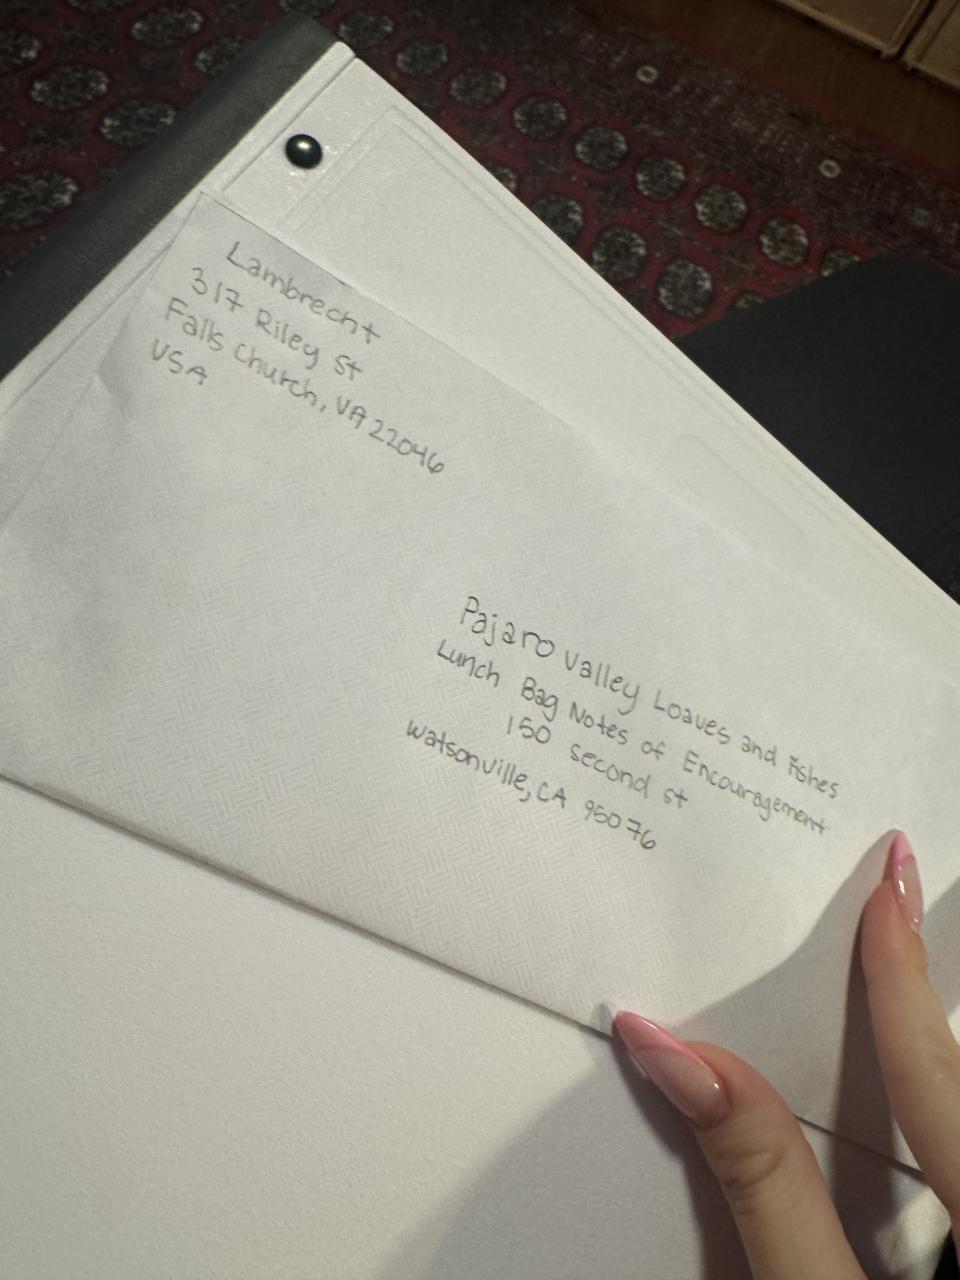 Lambrecht
317 Riley St
Falls Church, VA 22046
USA
Pajaro Valley Loaves and Fishes
Lunch Bag Notes of Encouragement
150 second st
Watsonville, CA 95076